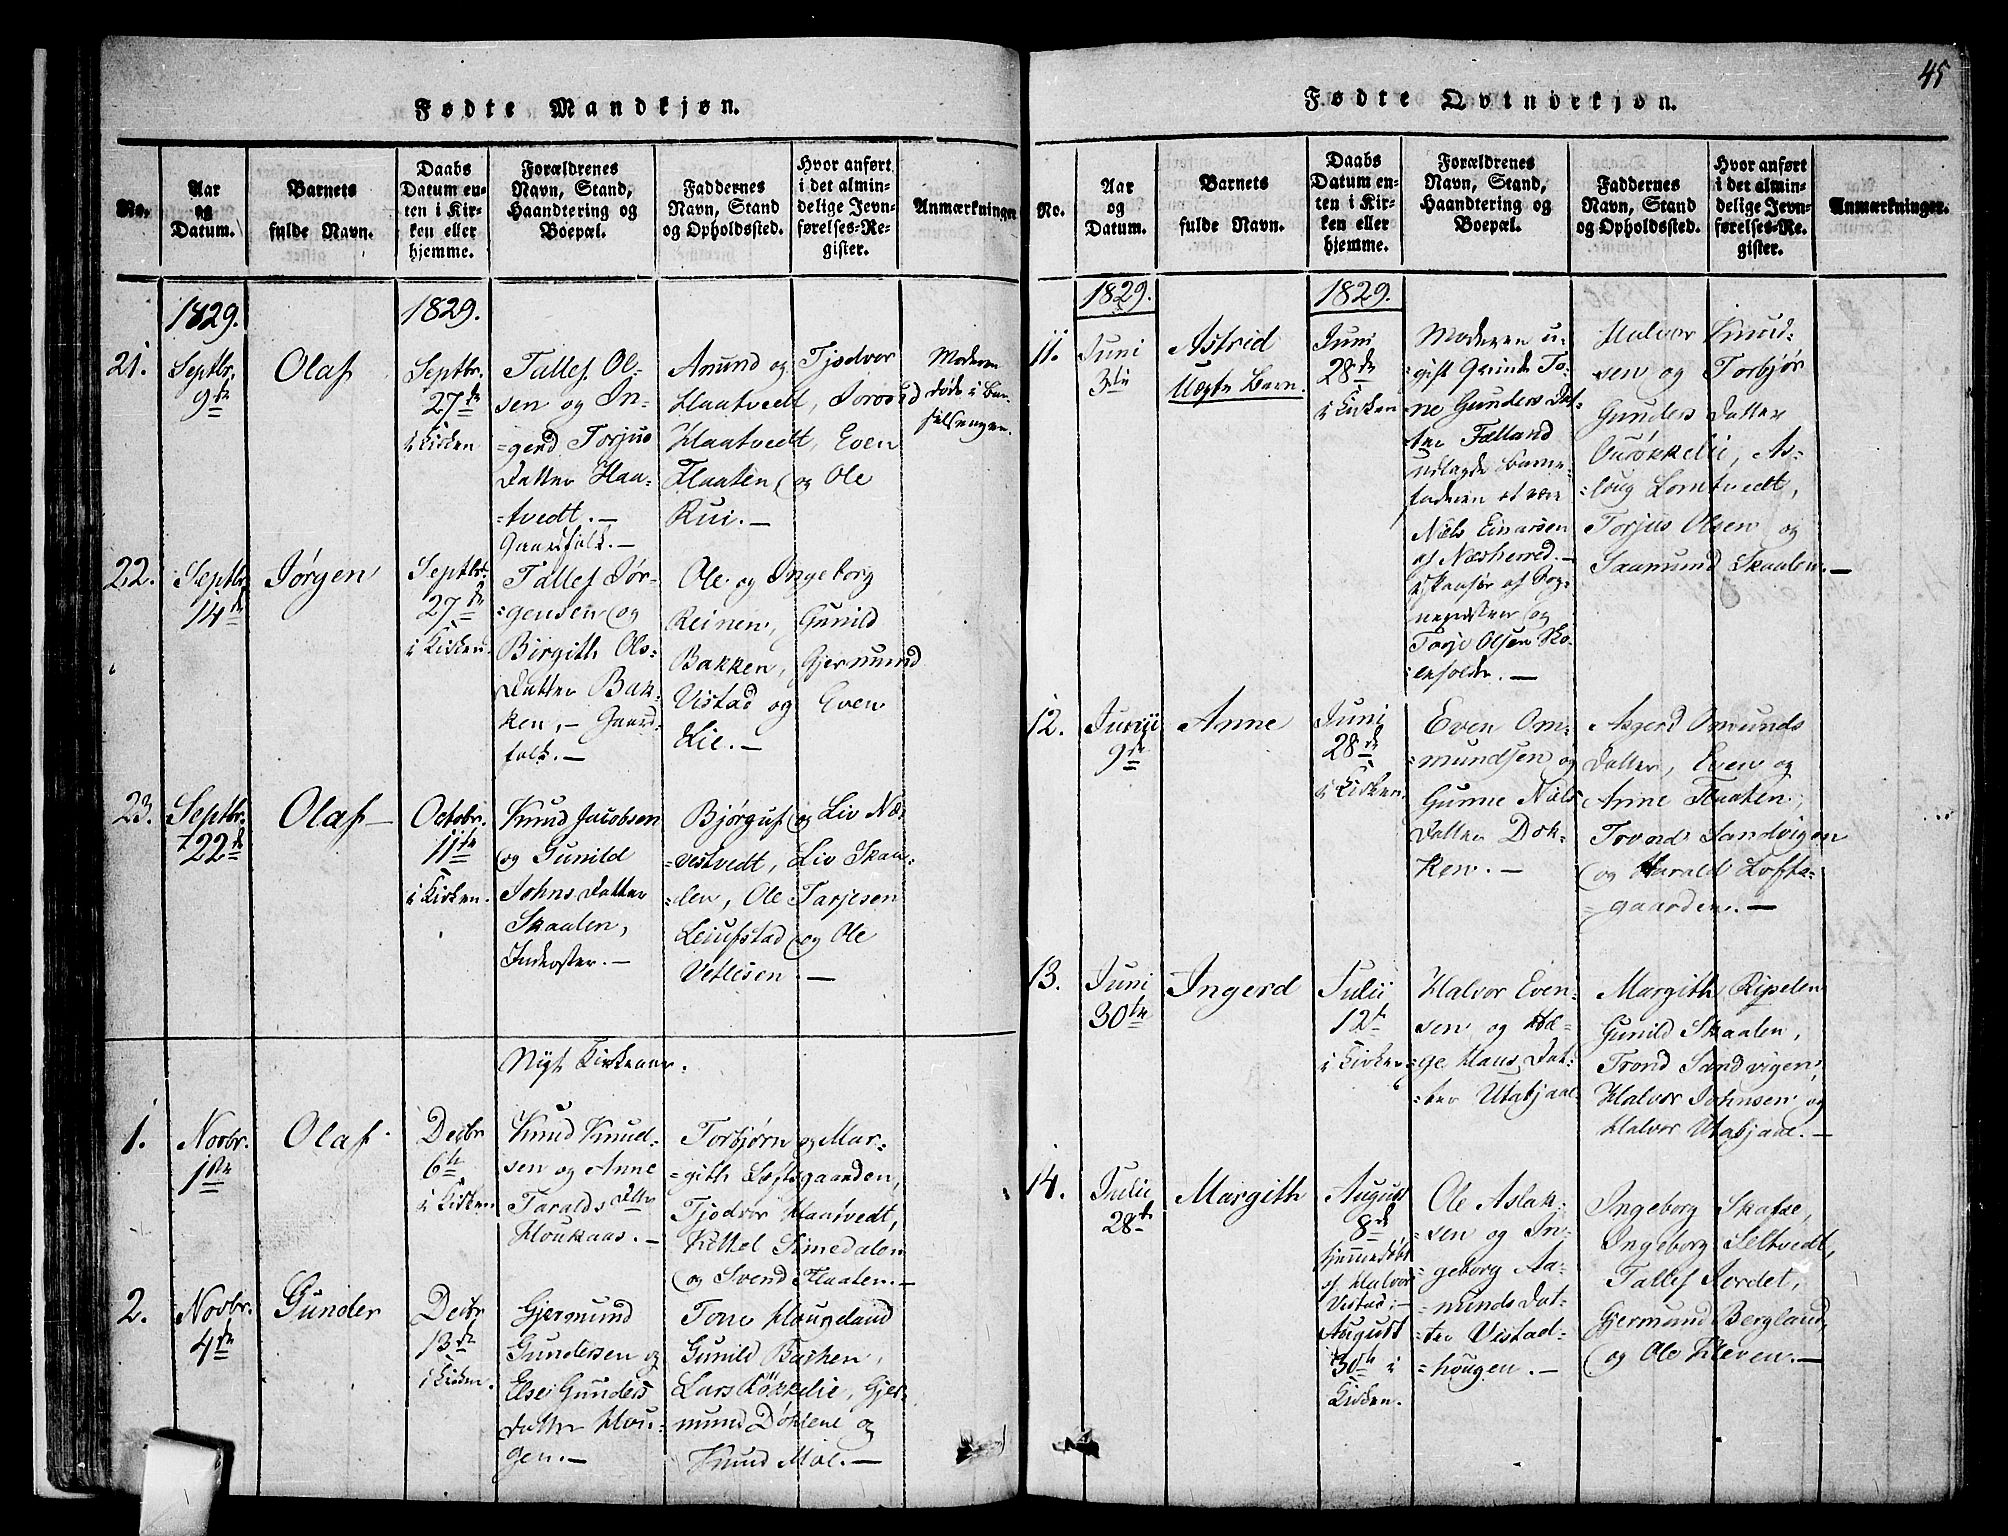 Fødte Mandkjøn.
No.
Aar
og
Datum.
Barnets
fulde Navn.
Daabs
Datum en-
ten i Kir-
ken eller
hjemme.
Forældrenes
Navn, Stand,
Haandtering og
Boepæl.
Faddernes
Navn, Stand
og Opholdssted.
Hvor anført
i det almin-
delige Jevn-
førelses-Re-
gister.
Anmærkninger
1829.
1829.
21.
Septbr.
9de
Olaf
Septbr.
27de
i Kirken
Tallef Ol-
sen og In-
gerd Torjus
Datter Haa-
tvedt. —
Gaardfolk. —
Anund og Tjodvor
Haatvedt, Joroed
Haatvedt, Even
Flaaten og Ole
Rui. —
Moderen
døde i Bar-
selsengen.
22.
Septbr.
14de
Jørgen
Septbr.
27de
i Kirken.
Tallef Jør-
gensen og
Birgith Ols-
Datter Bak-
ken, — Gaard-
folk. —
Ole og Ingeborg
Reinen, Gunild
Bakken, Gjermund
Vistad og Even
Lie. —
23.
Septbr.
22de
Olaf
Octobr.
11te
i Kirken.
Knud Jacobsen
og Gunild
Johns Datter
Skaalen,
Inderster. —
Bjørguf og Liv Næ-
vestvedt, Liv Skaa-
len, Ole Tarjesen
Leiufstad og Ole
Vetlesen. —
Nyt Kirkeaar.
1.
Novbr.
1ste
Olaf
Decbr
6te
i Kirken
Knud Knud-
sen og Anne
Taralds Dtter
Houkaas. —
Torbjørn og Mar-
gith Loftsgaarden,
Tjodvor Haatvedt,
Kittel Simedalen
og Svend Flaaten. —
2.
Novbr.
4de
Gunder
Decbr
13de
i Kirken.
Gjermund
Gundersen og
Else Gunders
Datter Hou-
gen. —
Tone Haugeland
Gunild Bakken,
Lars Røkkelie, Gjer-
mund Doklene og
Knud Moe. —
45
Fødte Qvindekjøn.
No.
Aar
og
Datum.
Barnets
fulde Navn.
Daabs
Datum en-
ten i Kir-
ken eller
hjemme.
Forældrenes
Navn, Stand,
Haandtering og
Boepæl.
Faddernes
Navn, Stand
og Opholdssted.
Hvor anført
i det almin-
delige Jevn-
førelses-Re-
gister.
Anmærkninger.
1829.
1829.
11.
Juni
3die
Astrid
Uægte Barn.
Juni
28de
i Kirken
Moderen u-
gift To-
ne Gunders Dat-
ter Fælland
udlagde Barne-
faderen at være
Niels Einarsen
af Næsherred. —
af Sog-
nepræsten og
Torje Olsen Sko-
leholder. —
Halvor Knud-
sen og Torbjør
Gunders Datter
Ourøkkelie, As-
loug Lomtvedt,
Torjus Olsen og
Saamund Skaalen. —
12.
Junii
9de
Anne
Juni
28de
i Kirken.
Even Om-
mundsen og
Gunne Niels
Datter Dok-
ken. —
Asgerd Omunds
Datter, Even og
Anne Flaaten,
Trond Sandvigen
og Harald Lofts-
gaarden. —
13.
Juni
30te
Ingerd
Julii
12te
i Kirken
Halvor Even-
sen og Hæ-
ge Hans Dat-
ter Utabjaae
Margith Ripelen
Gunild Skaalen,
Trond Sandvigen
Halvor Johnsen og
Halvor Utabjaae. —
14.
Julii
28de
Margith
August
8de
hjemmedøbt
af Halvor
Vistad; —
August
30te i
Kirken.
Ole Aslak-
sen og In-
geborg Aa-
munds Dat-
ter Vistad-
hougen. —
Ingeborg Skatse,
Ingeborg Seltvedt,
Tallef Jordet,
Gjermund Bergland,
og Ole Kleven. —